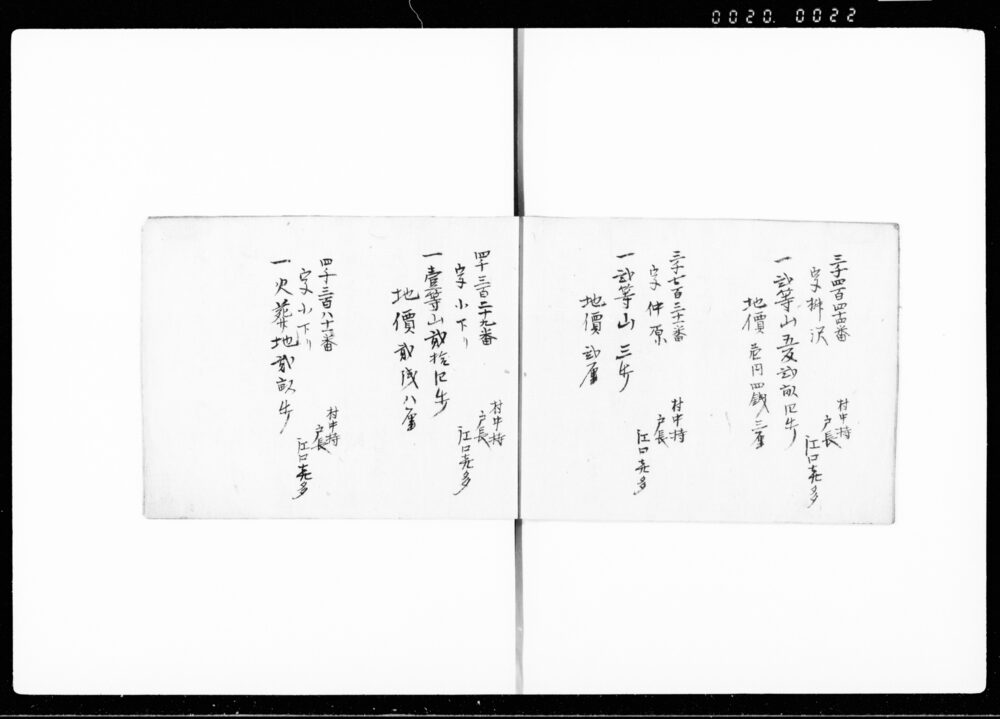 0020. 0022
三千四百四十番
字桝沢
一 弐等山五反弐畝四歩
地價 壱円四銭三厘
村中持
戸長
江口㐂多
三千七百三十二番
字仲原
一 弐等山 三歩
地價 弐厘
村中持
戸長
江口㐂多
四千三百二十九番
字小下リ
一 壹等山弐拾四歩
地價 弐銭八厘
村中持
戸長
江口㐂多
四千三百八十一番
字小下リ
一 火葬地弐畝歩
村中持
戸長
江口㐂多